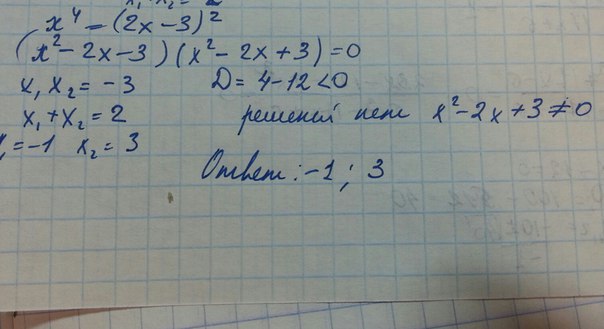 x⁴ - (2x - 3)²
(x² - 2x - 3)(x² - 2x + 3) = 0
x₁ x₂ = -3 D = 4 - 12 < 0
x₁ + x₂ = 2 решений нет x² - 2x + 3 ≠ 0
= -1 x₂ = 3
Ответ: -1; 3